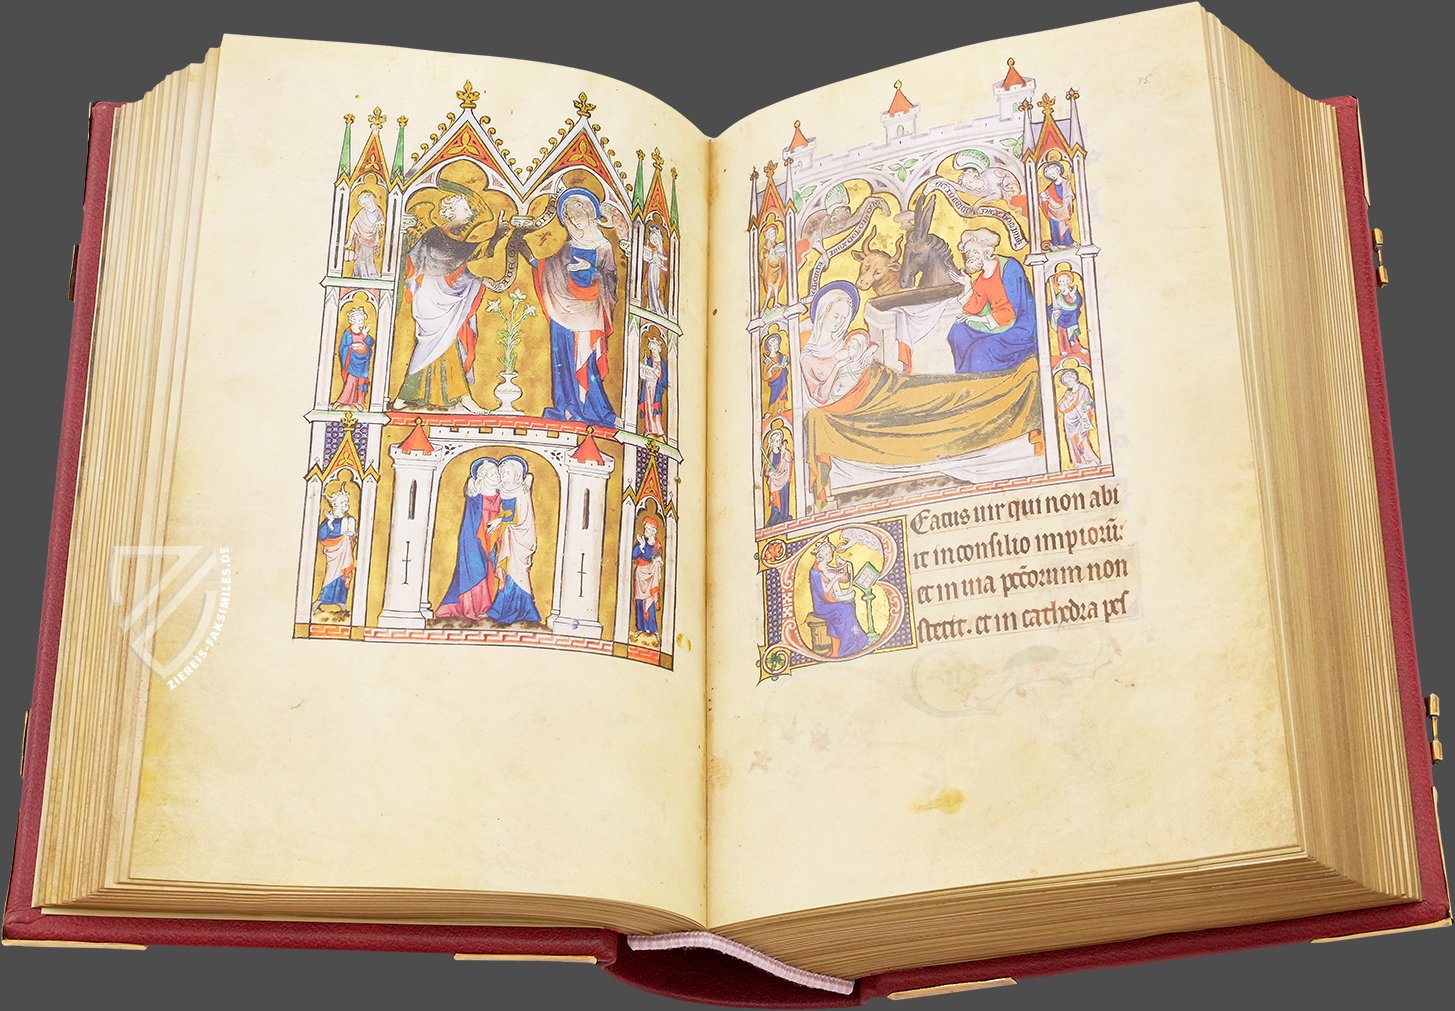 Eatus uir qui non abi
it in consilio impiorū:
et in uia pcc̄orum non
stetit. et in cathedra pes
ZIEREIS-FAKSIMILES.DE